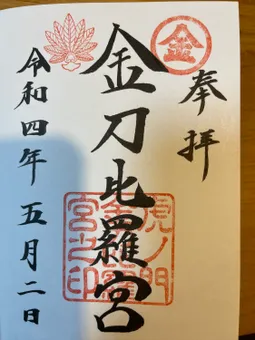 奉拝
金
金刀比羅宮
虎ノ門
金刀比羅
宮之印
令和四年五月二日